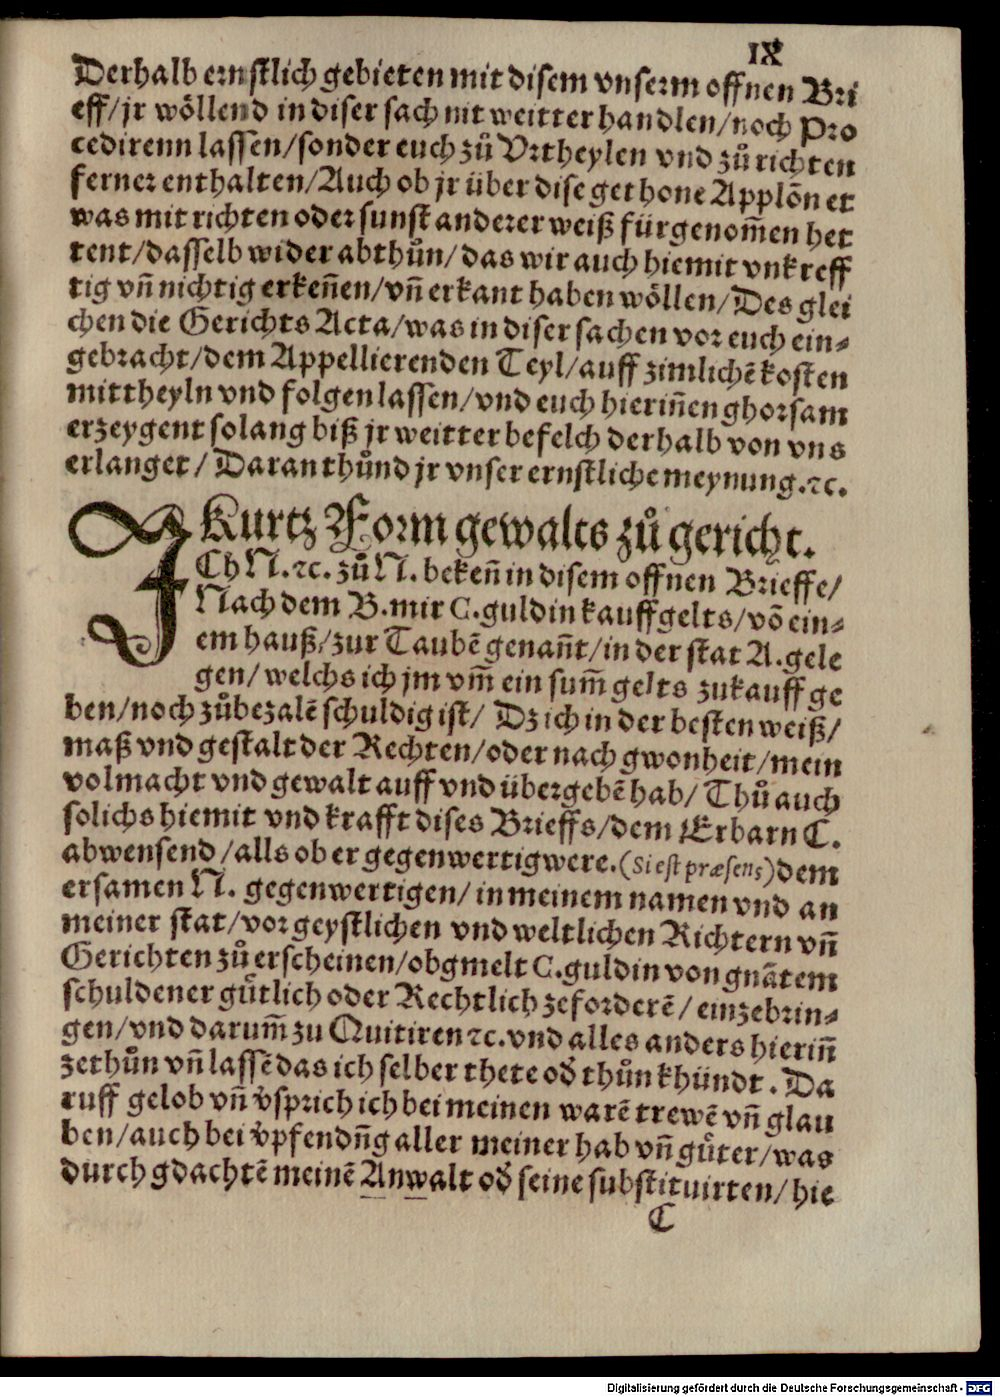 IX
Derhalb ernstlich gebieten mit disem vnserm offnen Bri
eff/ jr wöllend in diser sach nit weitter handlen/ noch Pro
cedirenn lassen/ sonder euch zů Vrtheylen vnd zů richten
ferner enthalten/ Auch ob jr über dise gethone Applõn et
was mit richten oder sunst anderer weiß fürgenom̃en het
tent/ dasselb wider abthůn/ das wir auch hiemit vnkreff
tig vñ nichtig erkeñen/ vñ erkant haben wöllen/ Des glei
chen die Gerichts Acta/ was in diser sachen vor euch ein⸗
gebracht/ dem Appellierenden Teyl/ auff zimlichẽ kosten
mittheyln vnd folgen lassen/ vnd euch hieriñen ghorsam
erzeygent solang biß jr weitter befelch derhalb von vns
erlanget/ Daran thůnd jr vnser ernstliche meynung.ꝛc.
Kurtz Form gewalts zů gericht.
ICh N.ꝛc. zů N. bekeñ in disem offnen Brieffe/
Nach dem B. mir C. guldin kauffgelts/ võ ein⸗
em hauß/ zur Taubẽ genañt/ in der stat A. gele
gen/ welchs ich jm vm̃ ein sum̃ gelts zukauff ge
ben/ noch zůbezalẽ schuldig ist/ Dz ich in der besten weiß/
maß vnd gestalt der Rechten/ oder nach gwonheit/ mein
volmacht vnd gewalt auff vnd übergebẽ hab/ Thů auch
solichs hiemit vnd krafft dises Brieffs/ dem Erbarn C.
abwensend/ alls ob er gegenwertig were. (Si est præsens) dem
ersamen N. gegenwertigen/ in meinem namen vnd an
meiner stat/ vor geystlichen vnd weltlichen Richtern vñ
Gerichten zů erscheinen/ obgmelt C. guldin von gnãtem
schuldener gůtlich oder Rechtlich zeforderẽ/ einzebrin⸗
gen/ vnd darum̃ zu Quitiren ꝛc. vnd alles anders hieriñ
zethůn vñ lassẽ das ich selber thete od̕ thůn khündt. Da
ruff gelob vñ v̕sprich ich bei meinen warẽ trewẽ vñ glau
ben/ auch bei v̕pfendñg aller meiner hab vñ gůter/ was
durch gdachtẽ meinẽ Anwalt od̕ seine substituirten/ hie
C
Digitalisierung gefördert durch die Deutsche Forschungsgemeinschaft - DFG